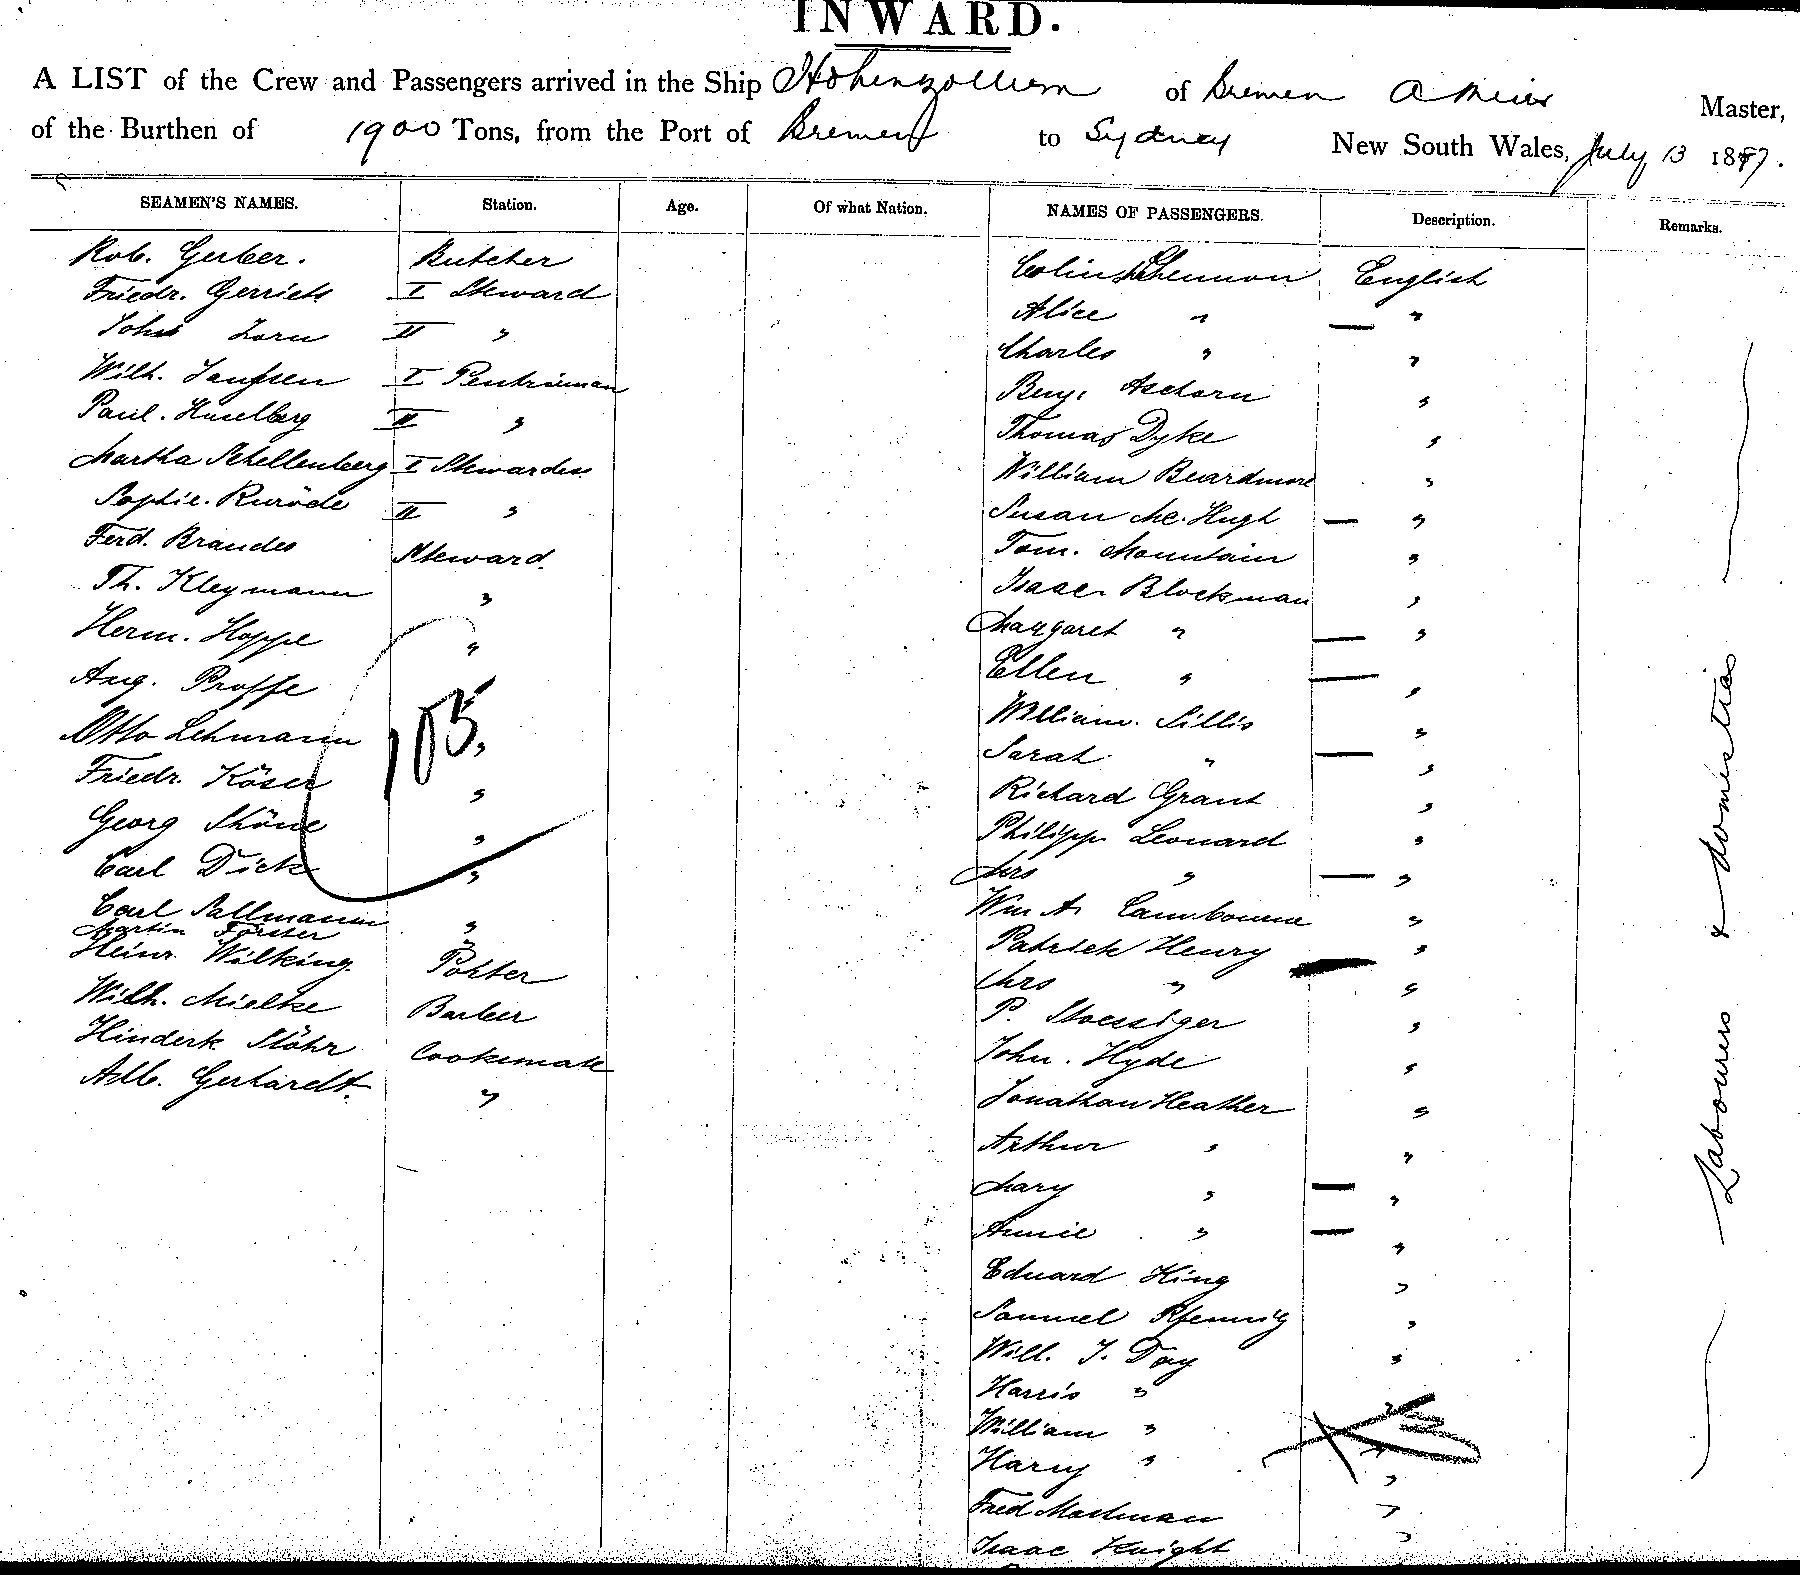 INWARD.
A LIST of the Crew and Passengers arrived in the Ship Hohenzollern of Bremen A Meier Master,
of the Burthen of 1900 Tons, from the Port of Bremen to Sydney New South Wales, July 13 1887.
SEAMEN'S NAMES. Station. Age. Of what Nation. NAMES OF PASSENGERS. Description. Remarks.
Rob. Gerber. Butcher
Friedr. Gerriets I Steward
Johs Zorn II "
Wilh. Janssen I Pentrieman
Paul. II "
Martha Schellenberg I Stewardess
Sophie. Kuröde II "
Ferd. Brandes Steward.
Th. Kleymann "
Herm. Hoppe "
Aug. Proffe
Otto Lehmann "
105
Friedr. Köser "
Georg Thöne "
Carl Dick "
Carl Sallmann "
Martin Förster "
Heinr. Wilking Porter
Wilh. Mielke Barber
Hinderk Stöhr Cooksmate
Alb. Gerhardt. "
Colin English
Alice " — "
Charles " "
Benj. Aschorn "
Thomas Dyke "
William Beardmore "
Susan Mc. Hugh — "
Tom. Mountain "
Isaac Blockman "
Margaret " — "
Ellen " — "
William. Sillis "
Sarah " — "
Richard Grant "
Philipp Leonard "
Mrs " — "
Wm A. Cambourne "
Patrick Henry "
Mrs " — "
P. Stoessiger "
John. Hyde "
Jonathan Heather "
Arthur " "
Mary " — "
Annie " — "
Eduard King "
Samuel Pfennig "
Will. J. Day "
Harris " "
William " "
Harry " "
Fred "
Isaac Knight "
Labourers & domestics